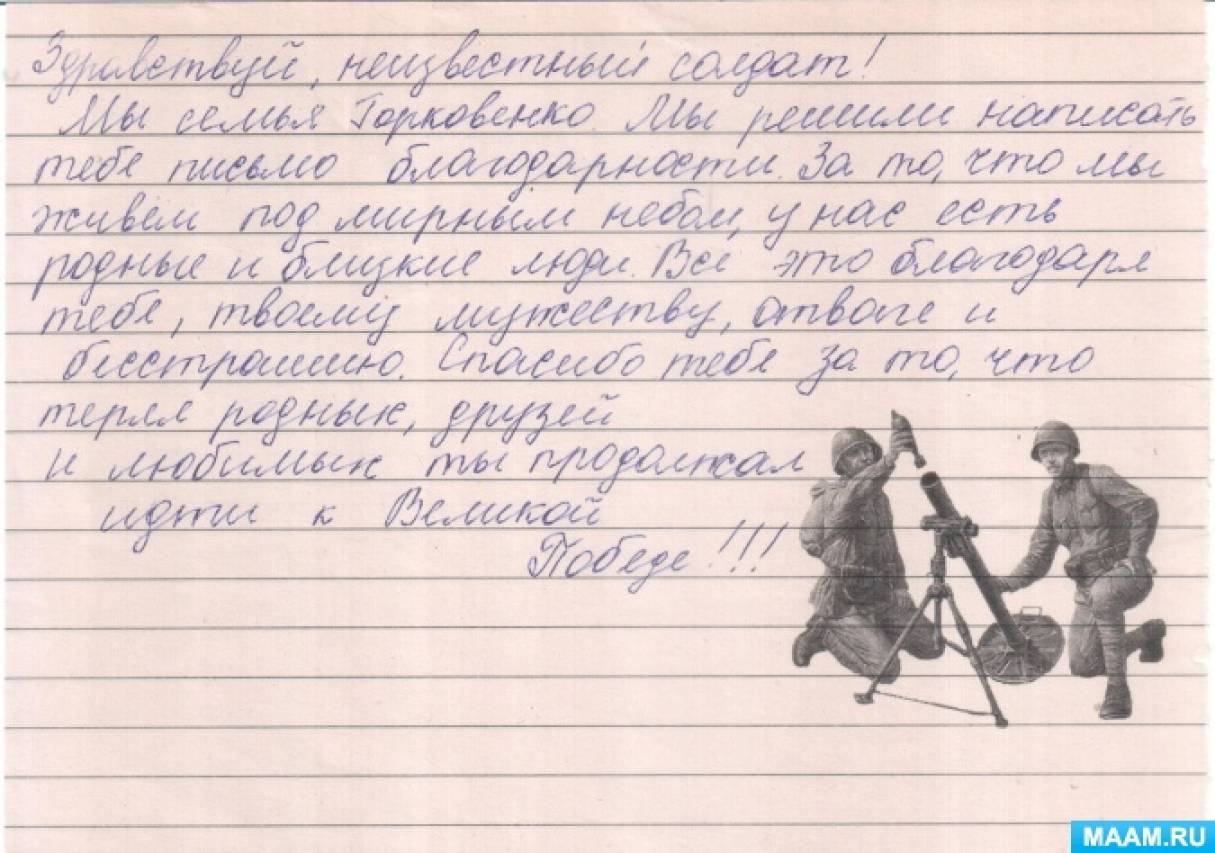 Здравствуй, неизвестный солдат!
Мы семья Горковенко. Мы решили написать
тебе письмо благодарности. За то, что мы
живём под мирным небом, у нас есть
родные и близкие люди. Всё это благодаря
тебе, твоему мужеству, отваге и
бесстрашию. Спасибо тебе за то, что
теряя родных, друзей
и любимых ты продолжал
идти к Великой
Победе!!!
MAAM.RU